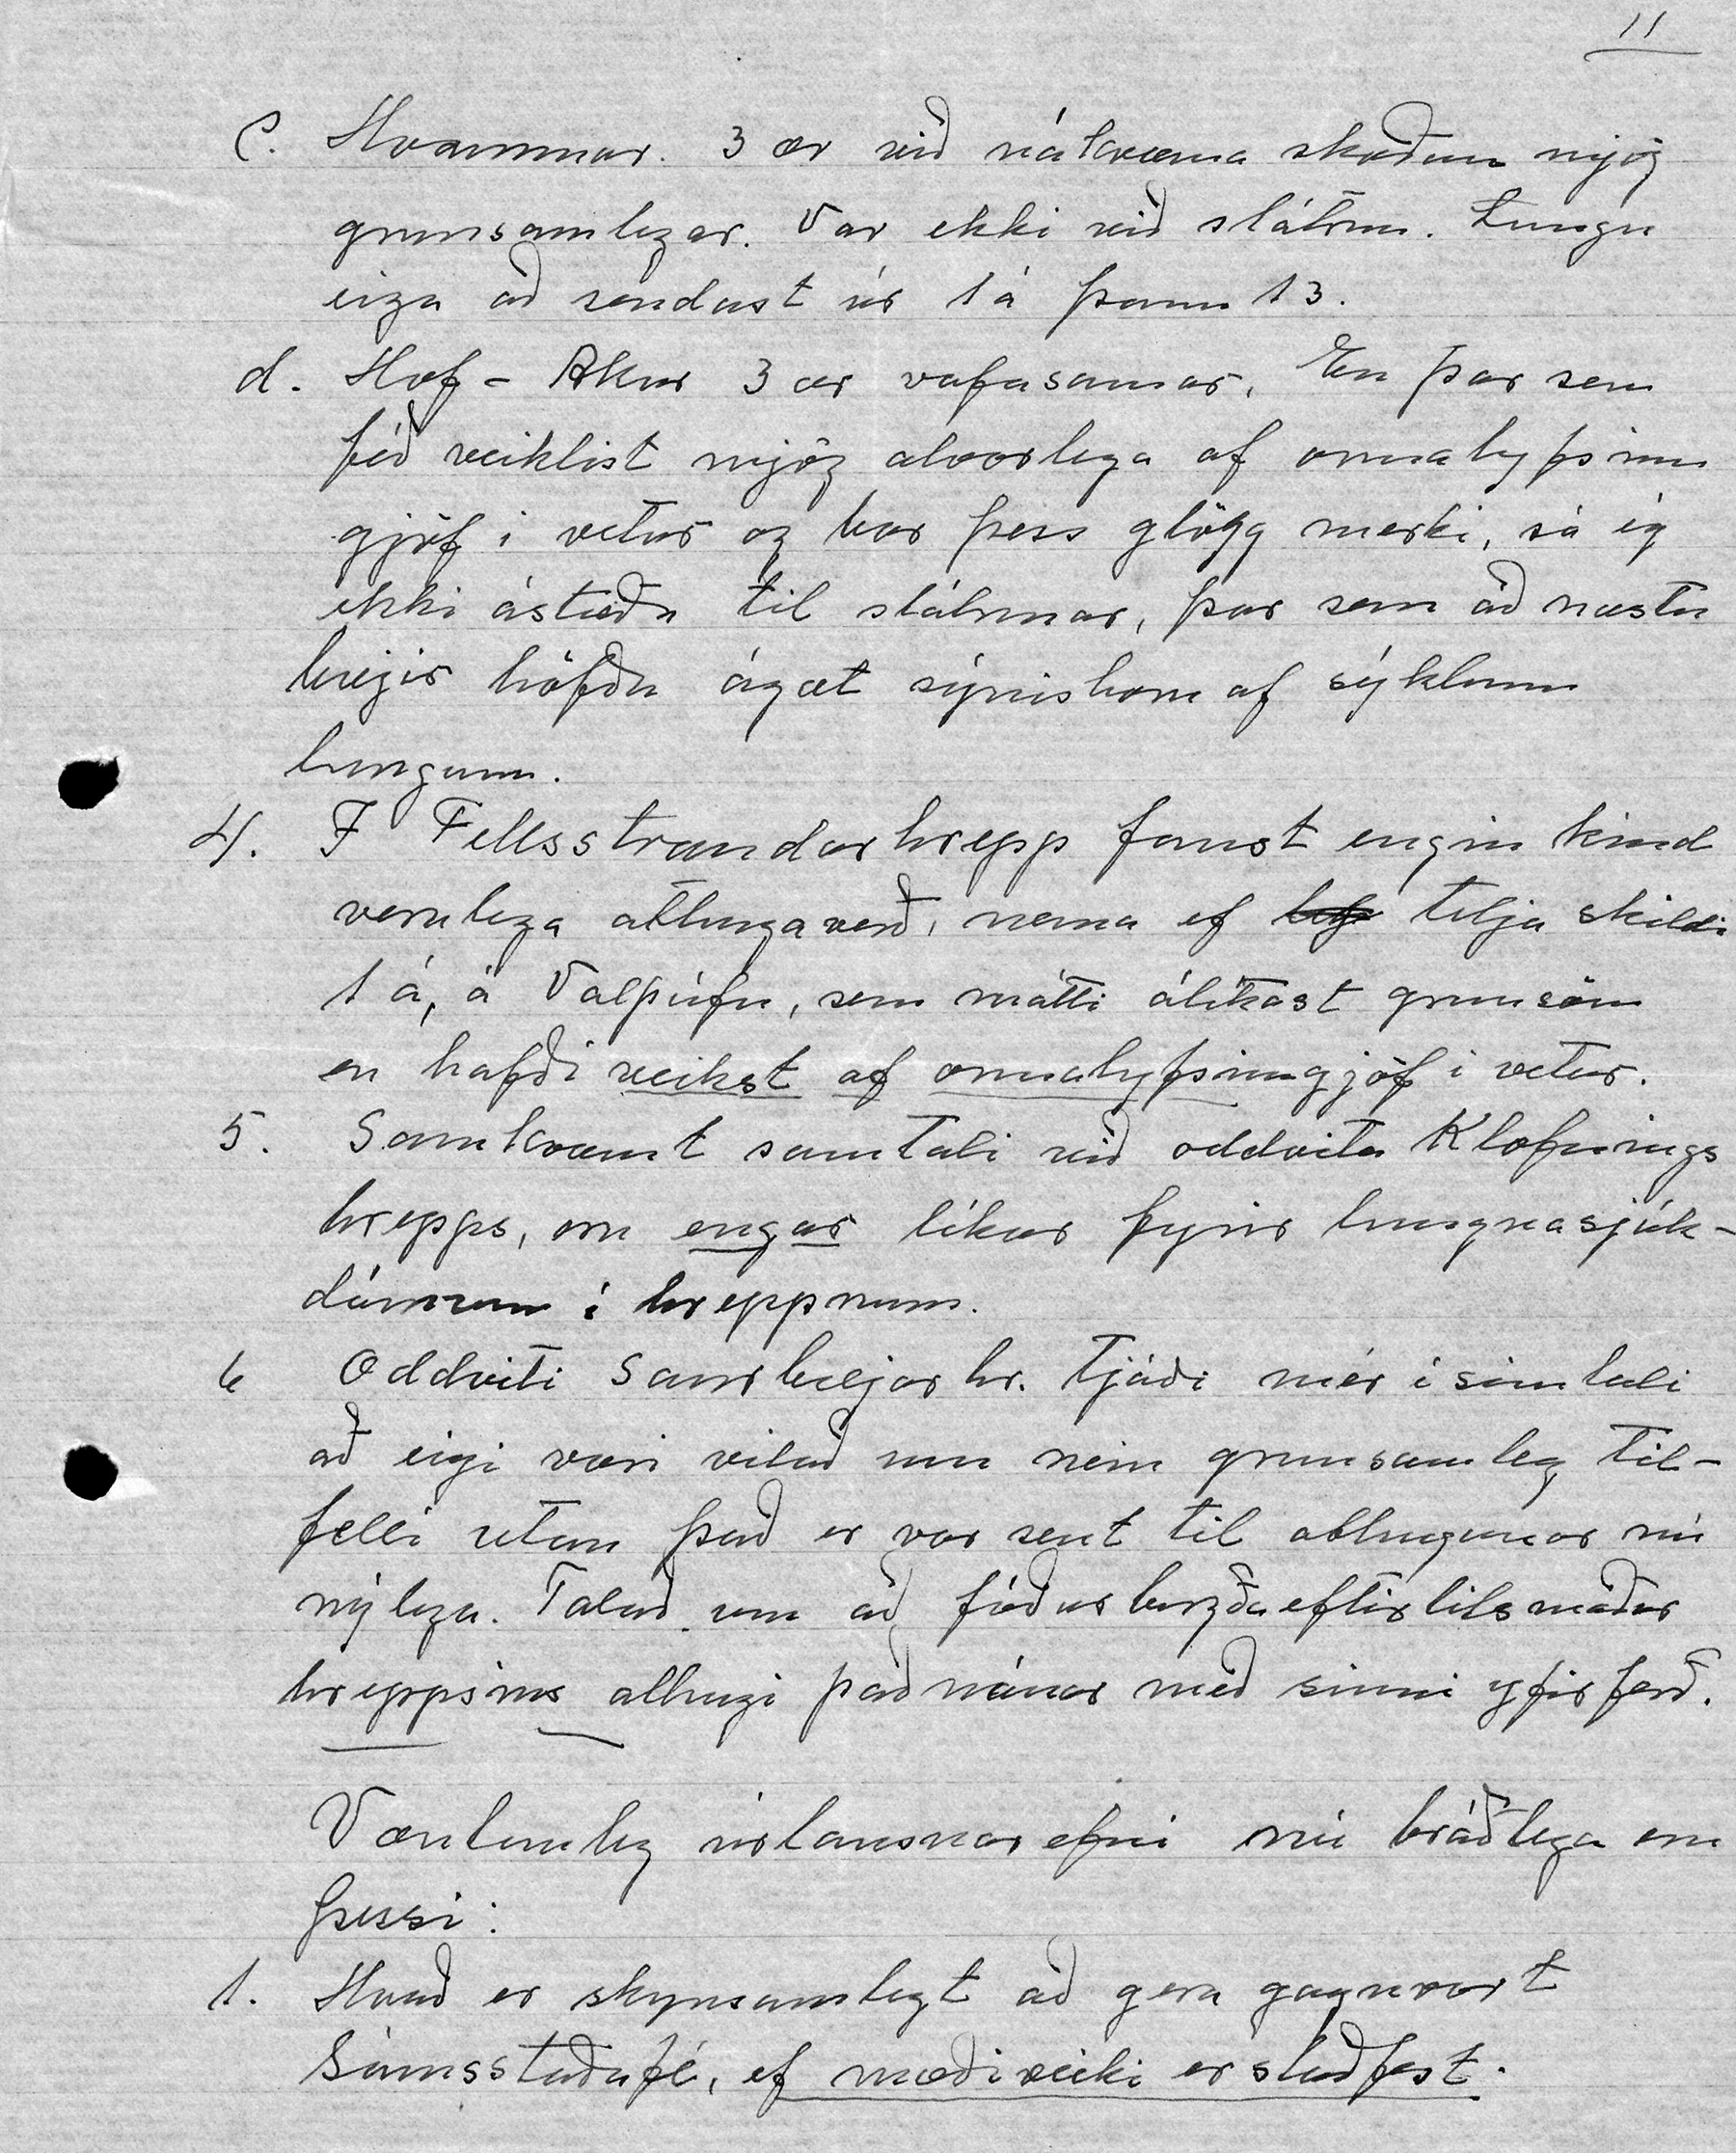 11
c. Hvammur. 3 ær við nákvæma skoðun mjög
grunsamlegar. Var ekki við slátrun. Lungu
eiga að sendast úr 1 á þann 13.
d. Hof - Akur 3 ær vafasamar. En þar sem
féð veiklist mjög alvarlega af ormalyfsinn
gjöf í vetur og bar þess glögg merki, sá ég
ekki ástæðu til slátrunar, þar sem að næstu
bæjir höfðu ágæt sýnishorn af sýktum
lungum.
4. Í Fellsstrandarhrepp fanst engin kind
verulega athugaverð, nema ef telja skildi
1 á, á Valþúfu, sem mátti álítast grunsöm
en hafði veikst af ormalyfsinngjöf í vetur.
5. Samkvæmt samtali við oddvita Klofnings
hrepps, eru engar líkur fyrir lungnasjúk-
dómum í hreppnum.
6 Oddviti Saurbæjarhr. tjáði mér í símtali
að eigi væri vitað um nein grunsamleg til-
felli utan það er var sent til athugunar nú
nýlega. Talað um að fóðurbirgðaeftirlitsmaður
hreppsins athugi það nánar með sinni yfirferð.
Væntanleg úrlausnarefni nú bráðlega eru
þessi:
1. Hvað er skynsamlegt að gera gagnvart
Sámsstaðafé, ef mæðiveiki er staðfest.